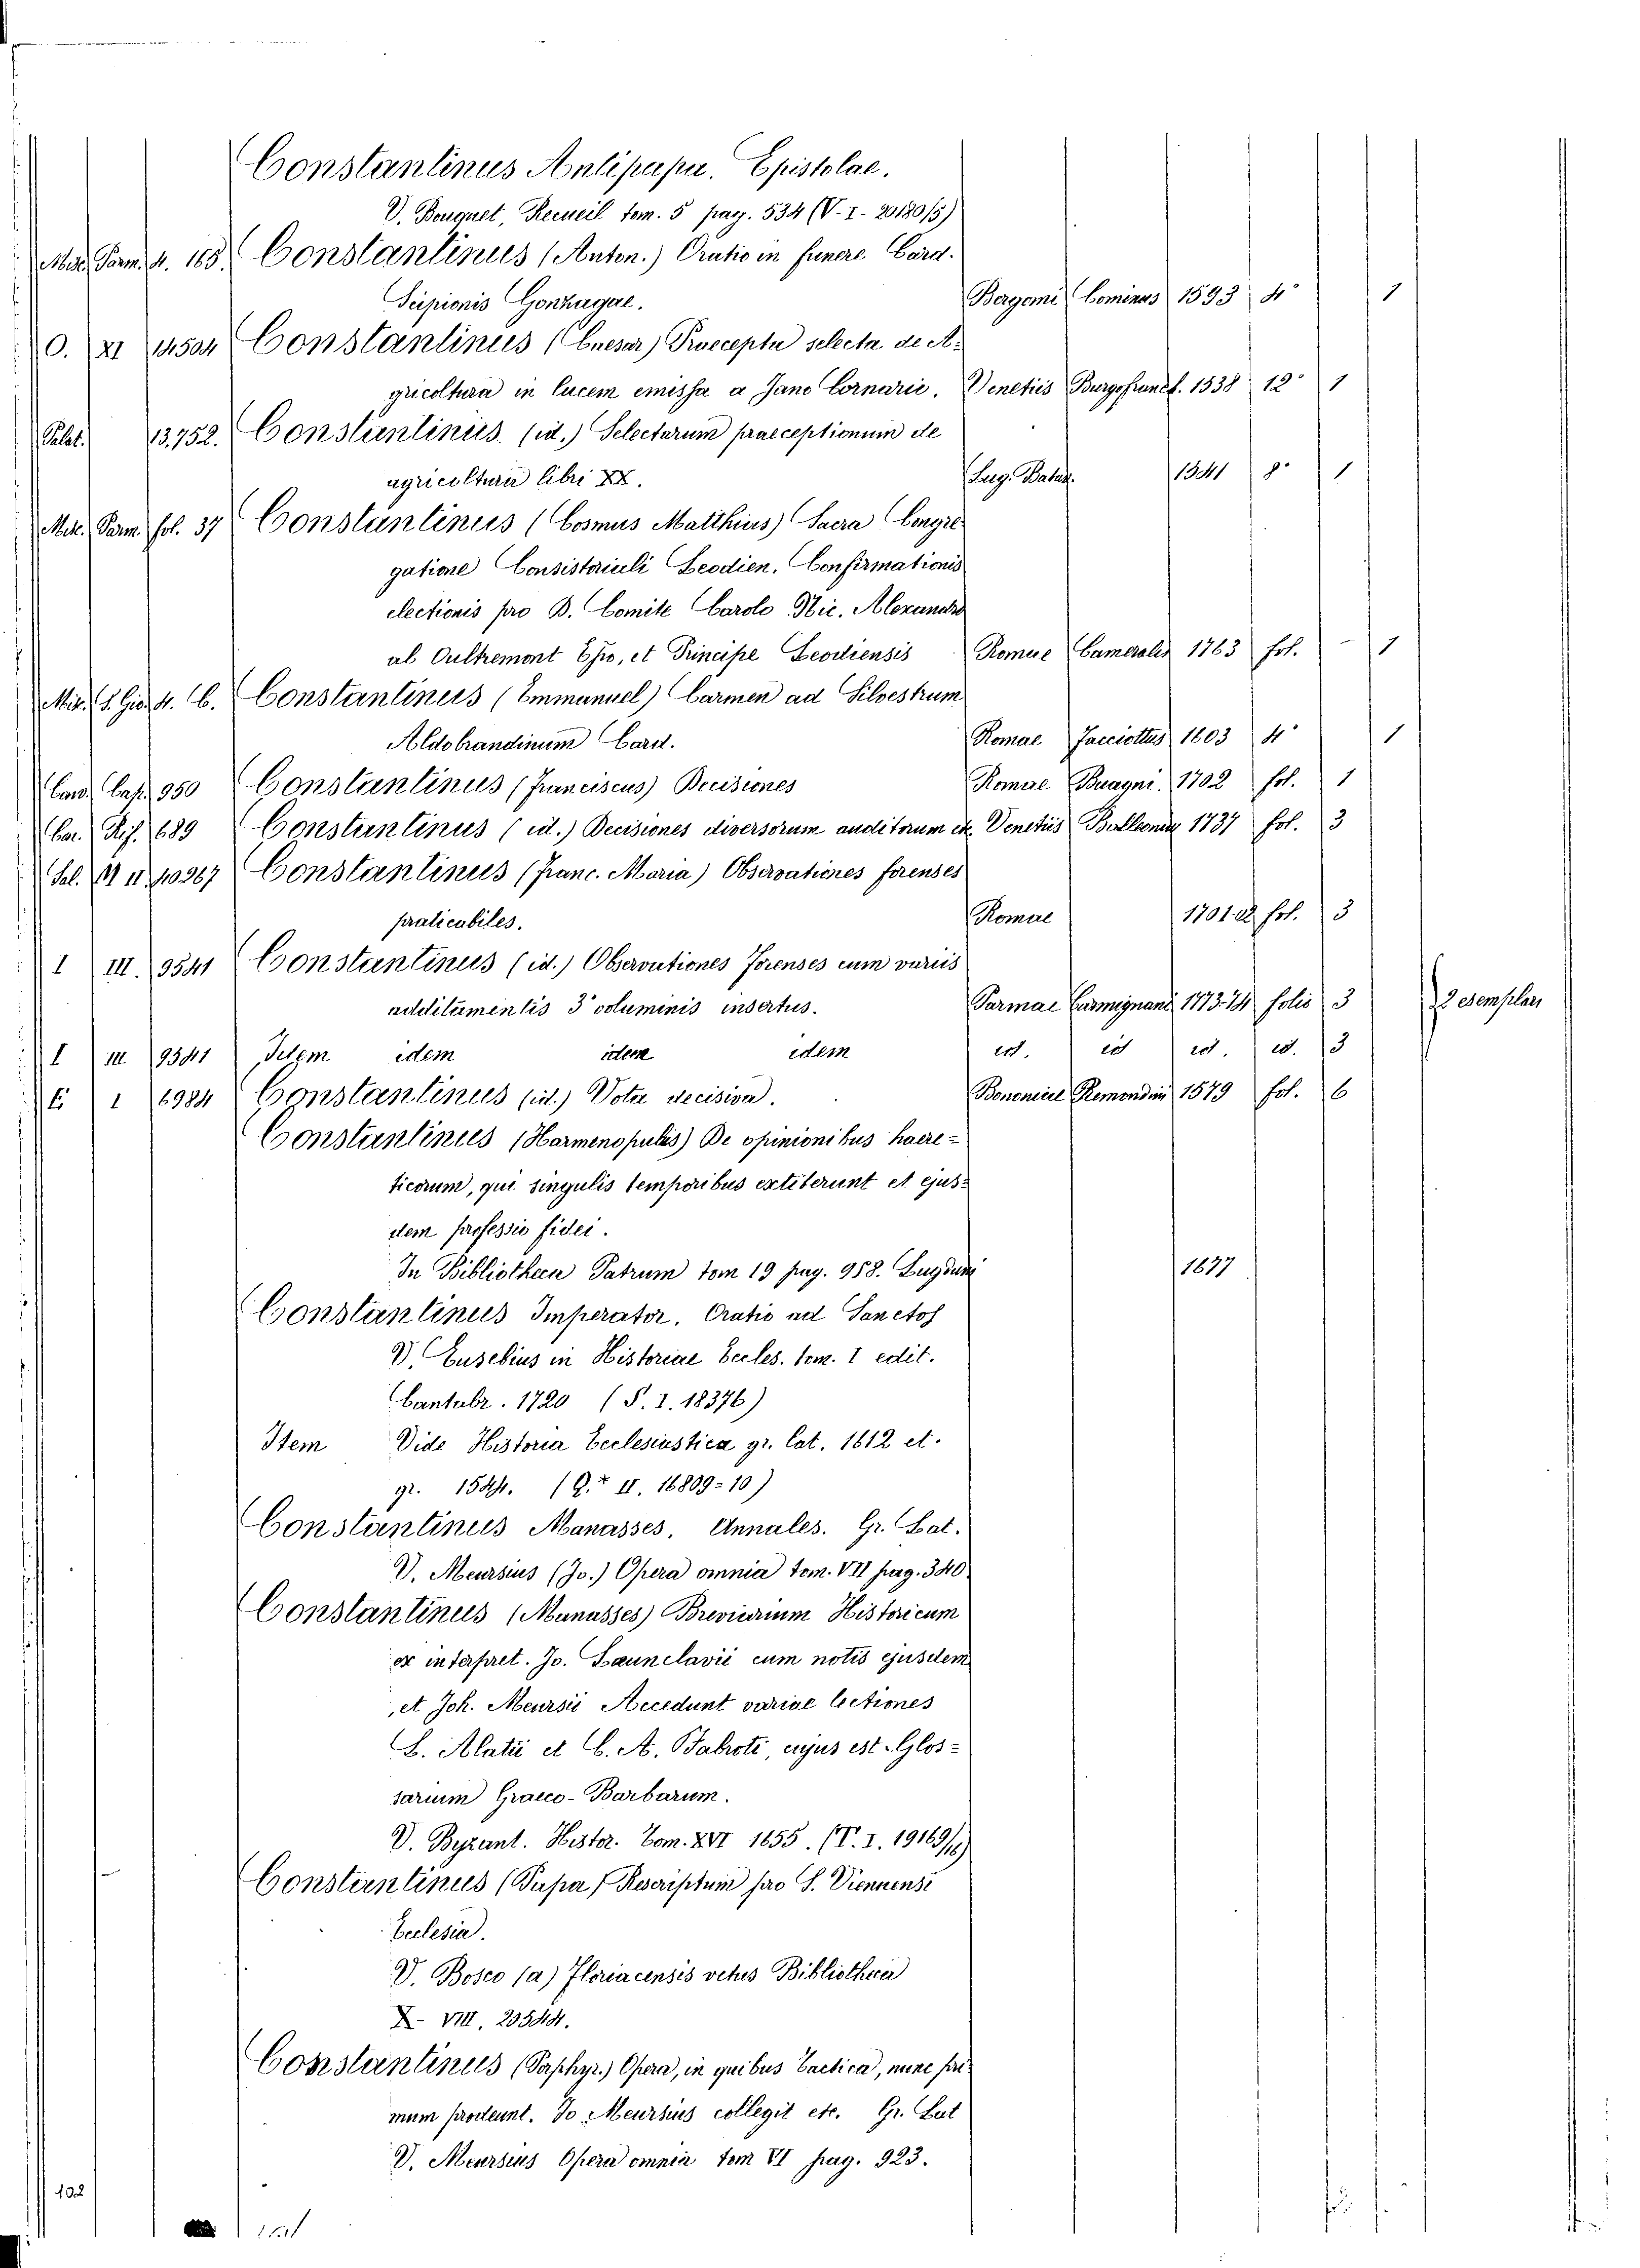 Constantinus Antipapa. Epistolae.
V. Bouquet, Recueil tom. 5 pag. 534 (V-I-20180/5)
Misc. Parm. 4. 165. Constantinus (Anton.) Oratio in funere Card.
Scipionis Gonzagae. Bergomi Cominus 1593 4° 1
O. XI 14504 Constantinus (Caesar) Praecepta selecta de A-
gricoltura in lucem emissa a Jano Cornario. Venetiis Burgofranc. 1538 12° 1
Palat. 13,752. Constantinus (id.) Selectarum praeceptionum de
agricoltura libri XX. Lug. Batav. 1541 8° 1
Misc. Parm. fol. 37 Constantinus (Cosmus Matthius) Sacra Congre-
gatione Consistoriali Leodien. Confirmationis
electionis pro B. Comite Carolo Nic. Alexandro
ab Oultremont Epo, et Principe Leodiensis Romae Cameralis 1763 fol. - 1
Mis. S. Gio. 4. C. Constantinus (Emmanuel) Carmen ad Silvestrum
Aldobrandinum Card. Romae Facciottus 1603 4° 1
Cand. Cap. 950 Constantinus (Franciscus) Decisiones Romae Buagni. 1702 fol. 1
Car. Rif. 689 Constantinus (id.) Decisiones diversorum auditorum etc. Venetiis Balleonin 1737 fol. 3
Sal. M II. 10267 Constantinus (Franc. Maria) Observationes forenses
praticabiles. Romae 1701-02 fol. 3
I III. 9541 Constantinus (id.) Observationes Forenses cum variis
additamentis 3° voluminis insertus. Parmae Carmignani 1773-74 folio 3 2 esemplari
I III 9541 Idem idem idem idem id. id id. id. 3
E I 6984 Constantinus (id.) Vota decisiva. Bononiae Remondin 1579 fol. 6
Constantinus (Harmenopulis) De opinionibus haere-
ticorum, qui singulis temporibus extiterunt et ejus-
dem professio fidei.
In Bibliotheca Patrum tom 19 pag. 958. Lugduni 1677
Constantinus Imperator. Oratio ad Sanctos
V. Eusebius in Historiae Eccles. tom. I edit.
Cantabr. 1720 (S. I. 18376)
Item Vide Historia Ecclesiastica gr. lat. 1612 et.
gr. 1544. (Q.* II. 16809-10)
Constantinus Manasses. Annales. Gr. Lat.
V. Meursius (Jo.) Opera omnia tom. VII pag. 340
Constantinus (Manasses) Breviarium Historicum
ex interpret. Jo. Launclavii cum notis ejusdem
, et Joh. Meursii Accedunt variae lectiones
L. Alatii et C. A. Fabroti, cujus est Glos-
sarium Graeco-Barbarum.
V. Byzant. Histor. Tom. XVI 1655. (T. I. 19169/16)
Constantinus (Papa) Rescriptum pro S. Viennensi
Ecclesia.
V. Bosco (a) Floriacensis vetus Bibliotheca
X- VIII. 20544.
Constantinus (Porphyr.) Opera, in quibus Tactica, nunc pri-
mum prodeunt. Jo Meursius collegit etc. Gr. Lat
V. Meursius Opera omnia tom VI pag. 923.
102